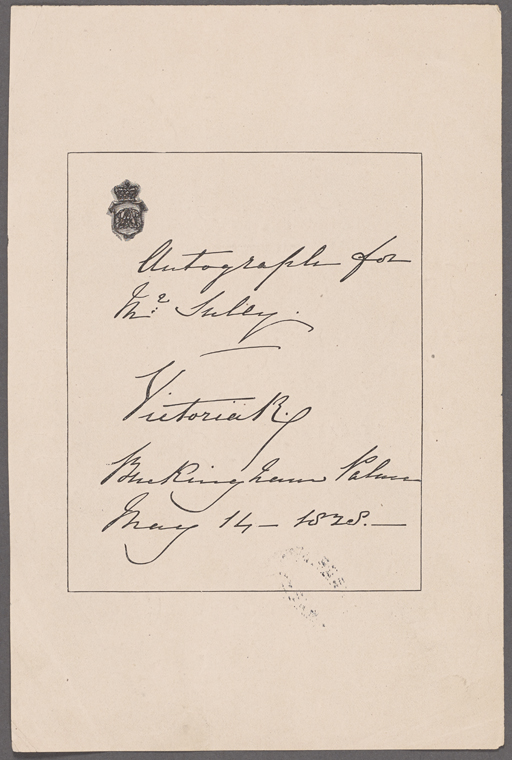 Autograph for
Mr: Sully.
Victoria R.
Buckingham Palace
May 14 – 1838. –